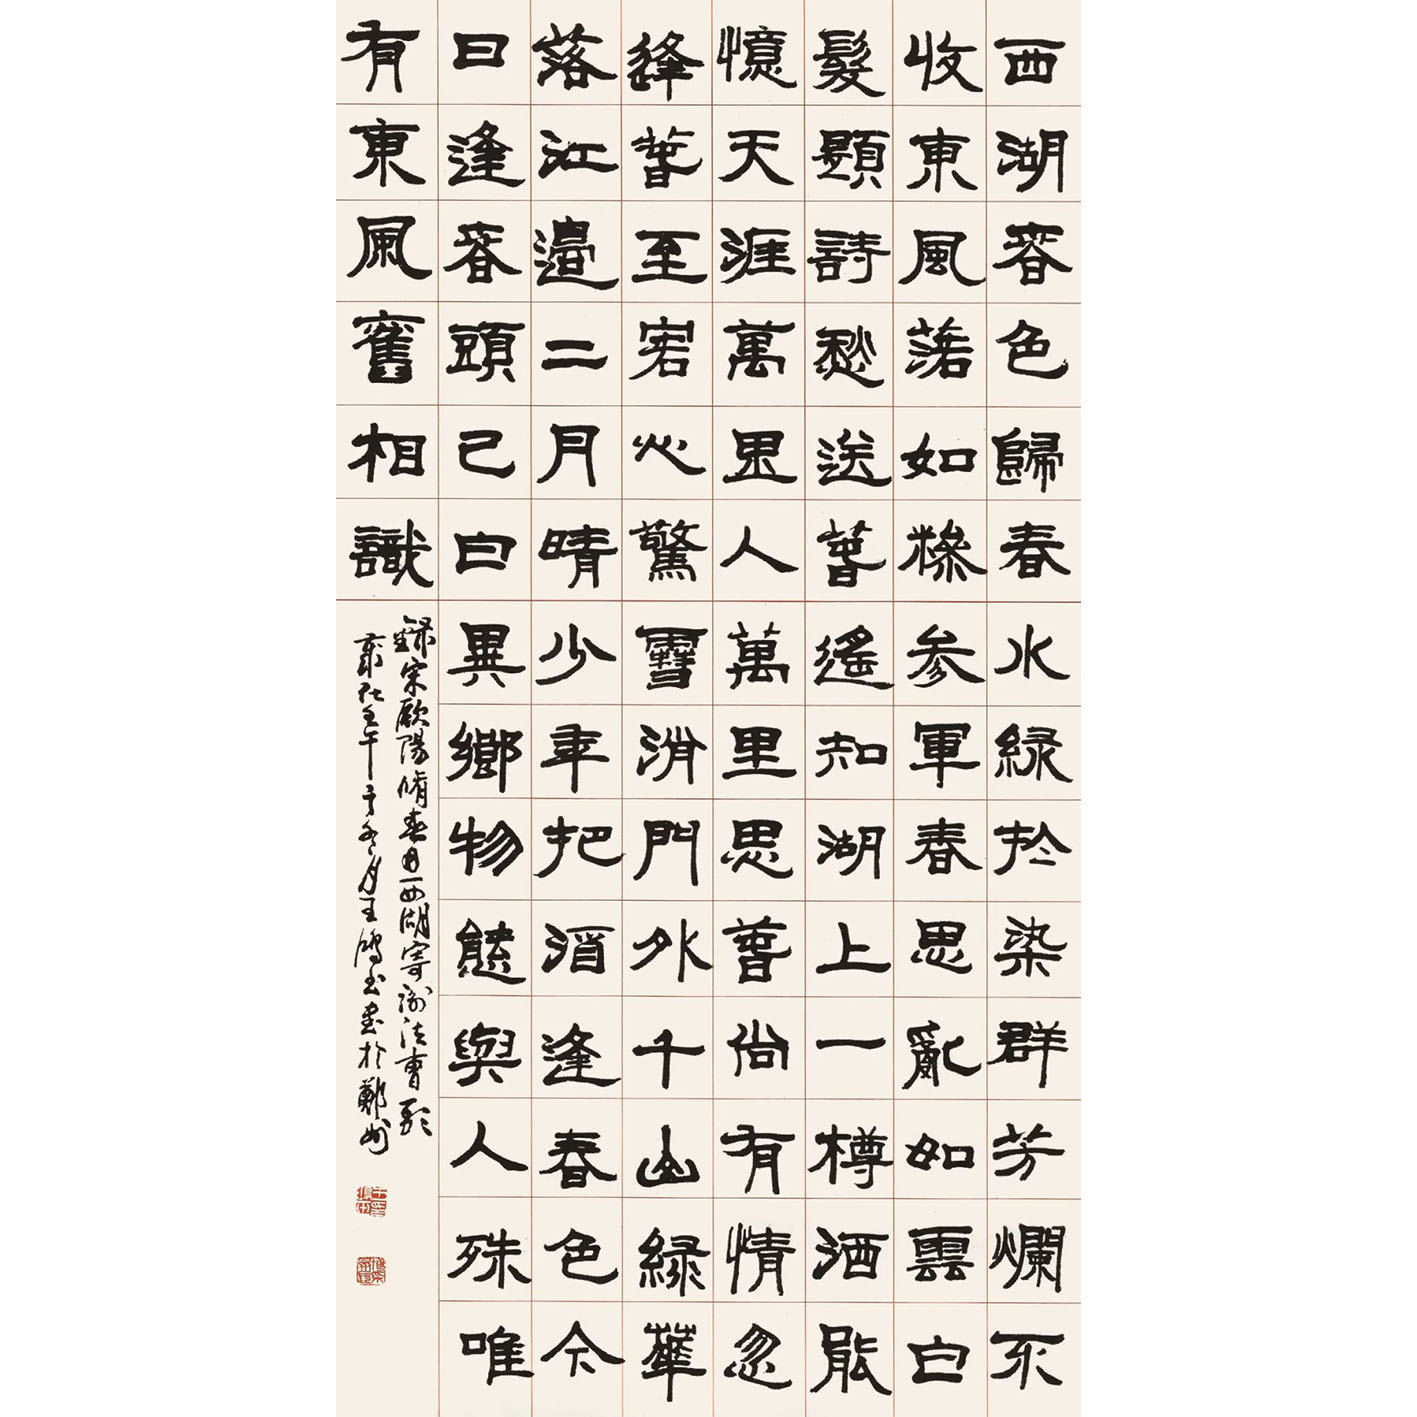 西湖春色歸春水緑於染群芳爛不
收東風落如糝參軍春思亂如雲白
髮題詩愁送春遙知湖上一樽酒能
憶天涯萬里人萬里思春尚有情忽
逢春至客心驚雪消門外千山緑華
落江邊二月晴少年把酒逢春色今
日逢春頭已白異鄉物態與人殊唯
有東風舊相識
錄宋歐陽脩春日西湖寄謝法曹歌
歲在壬午冬月王鴻玉書於鄭州